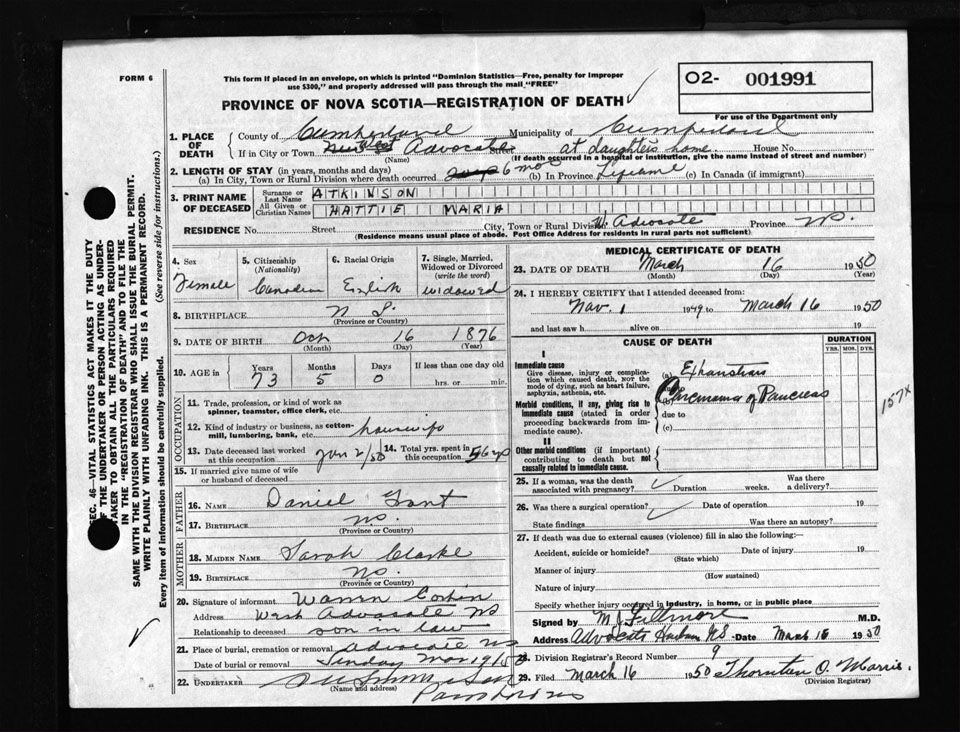 FORM 6
This form if placed in an envelope, on which is printed "Dominion Statistics—Free, penalty for improper
use $300," and properly addressed will pass through the mail "FREE"
PROVINCE OF NOVA SCOTIA—REGISTRATION OF DEATH
O2- 001991
For use of the Department only
1. PLACE OF DEATH
County of Cumberland Municipality of Cumberland
If in City or Town West Advocate Street at daughters home. House No.
(Name) (If death occurred in a hospital or institution, give the name instead of street and number)
2. LENGTH OF STAY (in years, months and days)
(a) In City, Town or Rural Division where death occurred 6 mos (b) In Province Lifetime (c) In Canada (if immigrant)
3. PRINT NAME OF DECEASED
Surname or Last Name ATKINSON
All Given or Christian Names HATTIE MARIA
RESIDENCE No. Street City, Town or Rural Division W. Advocate Province NS.
(Residence means usual place of abode. Post Office Address for residents in rural parts not sufficient)
4. Sex Female
5. Citizenship (Nationality) Canadian
6. Racial Origin English
7. Single, Married, Widowed or Divorced (write the word) widowed
8. BIRTHPLACE N S.
(Province or Country)
9. DATE OF BIRTH Oct 16 1876
(Month) (Day) (Year)
10. AGE in Years 73 Months 5 Days 0 If less than one day old hrs. or min.
OCCUPATION
11. Trade, profession, or kind of work as
spinner, teamster, office clerk, etc.
12. Kind of industry or business, as cotton-
mill, lumbering, bank, etc. housewife
13. Date deceased last worked at this occupation Jan 2/50
14. Total yrs. spent in this occupation 56 yrs
15. If married give name of wife
or husband of deceased
FATHER
16. Name Daniel
17. Birthplace NS.
(Province or Country)
MOTHER
18. Maiden Name Sarah Clarke
19. Birthplace NS.
(Province or Country)
20. Signature of informant Warren
Address West Advocate NS
Relationship to deceased son in law
21. Place of burial, cremation or removal Advocate NS
Date of burial or removal Sunday Mar 19/50
22. UNDERTAKER
(Name and address)
Parrsboro NS
MEDICAL CERTIFICATE OF DEATH
23. DATE OF DEATH March 16 1950
(Month) (Day) (Year)
24. I HEREBY CERTIFY that I attended deceased from:
Nov. 1 1949 to March 16 1950
and last saw h alive on 19
CAUSE OF DEATH
DURATION
YRS. MOS. DYS.
I
Immediate cause
Give disease, injury or complica-
tion which caused death, NOT the
mode of dying, such as heart failure,
asphyxia, asthenia, etc.
(a) Exhaustion
Morbid conditions, if any, giving rise to
immediate cause (stated in order
proceeding backwards from im-
mediate cause).
(b) Carcinoma of Pancreas
due to
(c)
157X
II
Other morbid conditions (if important)
contributing to death but not
causally related to immediate cause.
25. If a woman, was the death
associated with pregnancy? Duration weeks. Was there a delivery?
26. Was there a surgical operation? Date of operation 19
State findings Was there an autopsy?
27. If death was due to external causes (violence) fill in also the following:—
Accident, suicide or homicide? Date of injury 19
(State which)
Manner of injury
(How sustained)
Nature of injury
Specify whether injury occurred in industry, in home, or in public place
Signed by M J Fillmore M.D.
Address Advocate Harbour N.S. Date March 16 1950
28. Division Registrar's Record Number 9
29. Filed March 16 1950 Thornton O. Morris.
(Division Registrar)
SEC. 46—VITAL STATISTICS ACT MAKES IT THE DUTY
OF THE UNDERTAKER OR PERSON ACTING AS UNDER-
TAKER TO OBTAIN ALL THE PARTICULARS REQUIRED
IN THE "REGISTRATION OF DEATH" AND TO FILE THE
SAME WITH THE DIVISION REGISTRAR WHO SHALL ISSUE THE BURIAL PERMIT.
WRITE PLAINLY WITH UNFADING INK. THIS IS A PERMANENT RECORD.
Every item of information should be carefully supplied. (See reverse side for instructions.)